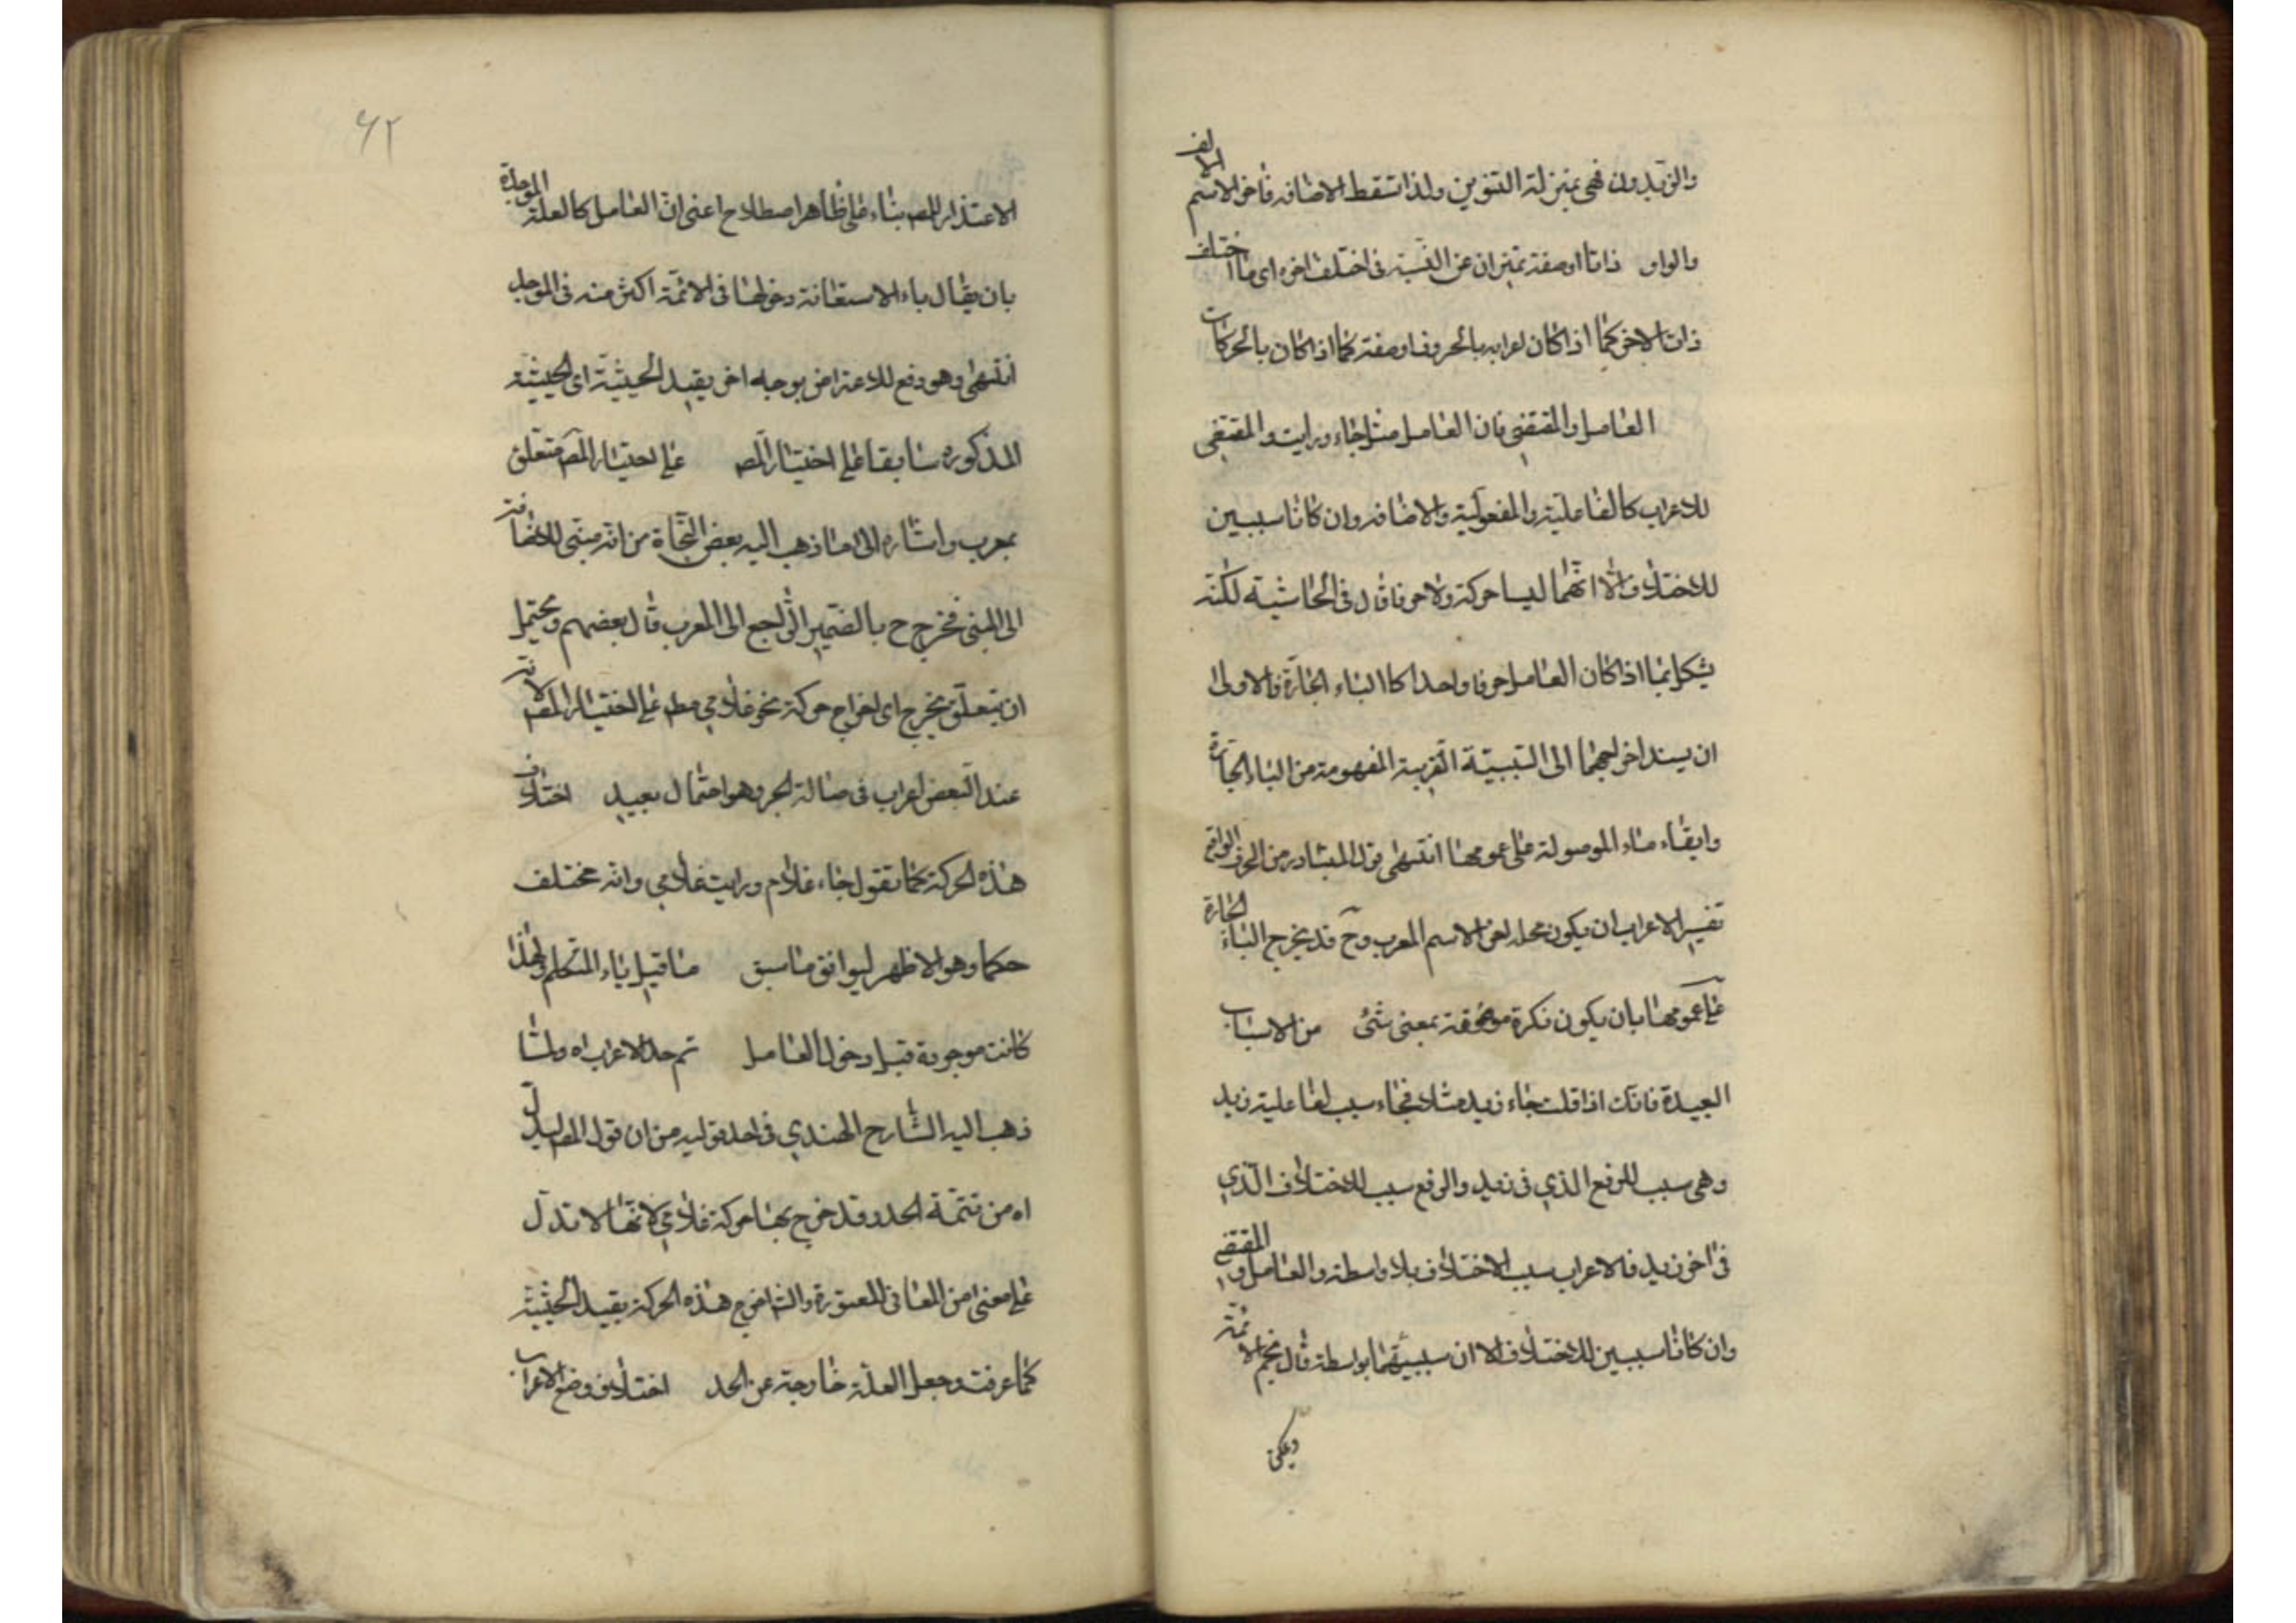 والزيدون فهى بمنزلة التنوين ولذا تسقط الاضافه فاخر الاسم الالف
والواو ذاتا او صفة تميزان عن النسبة فى اختلف اخره اى ما اختلف
ذات الاخر كما اذا كان اعرابه بالحروف او صفته كما اذا كان بالحركات
العامل والمقتضى فان العامل مثل جاء ورايت والمقتضى
للاعراب كالفاعلية والمفعولية والاضافه وان كانا سببين
للاختلاف الا انهما ليسا حركة ولا حرفا قال فى الحاشية لكنه
يشكل بما اذا كان العامل حرفا واحدا كالباء الجارة فالاولى
ان يسند اخراجهما الى السببية القريبة المفهومة من الباء الجارة
وابقاء ماء الموصولة على عمومها انتهى قول المتبادر من الحرف الواقع
تفسير الاعراب ان يكون محله اخر الاسم المعرب وح قد يخرج الباء الجارة
على عمومها بان يكون نكرة موصوفة بمعنى شئ من الاسباب
البعيدة فانك اذا قلت جاء زيد مثلا فجاء سبب لفاعلية زيد
وهى سبب للرفع الذي فى زيد والرفع سبب للاختلاف الذي
فى اخر زيد فالاعراب سبب الاختلاف بلا واسطة والعامل والمقتضى
وان كانا سببين للاختلاف الا ان سببيتهما بواسطة قال نجم الائمة
ويمكن
٦٢
الاعتذار للمص بناء على ظاهر اصطلاح اعنى ان العامل كالعلة الموجدة
بان يقال باء الاستعانة دخولها فى الائمة اكثر منه فى الموجد
انتهى وهو دفع للاعتراض بوجه اخر بقيد الحيثية اى الحيثية
المذكوره سابقا على اختيار المص على اختيار المص متعلق
بمعرب واشاره الى ما ذهب اليه بعض النحاة من انه مبنى للاضافة
الى المبنى فخرج ح بالضمير الراجع الى المعرب قال بعضهم ويحتمل
ان يتعلق بخرج اى اخراج حركة نحو غلامي مط على اختيار المص لانه
عند البعض اعراب فى حالة الجر وهو احتمال بعيد اختلاف
هذه الحركة كما تقول جاء غلام ورايت غلامي وانه مختلف
حكما وهو الاظهر ليوافق ما سبق ما قبل ياء المتكلم ولهذا
كانت موجودة قبل دخول العامل تم حد الاعراب اه ولما
ذهب اليه الشارح الهندي فى احد قوليه من ان قول المص ليدل
اه من تتمة الحد وقد خرج بها حركة غلامي لانها لا تدل
على معنى من المعانى المعتورة والشا اخرج هذه الحركة بقيد الحيثية
كما عرفت وجعل العلة خارجة عن الحد اختلاف وضع الاعراب